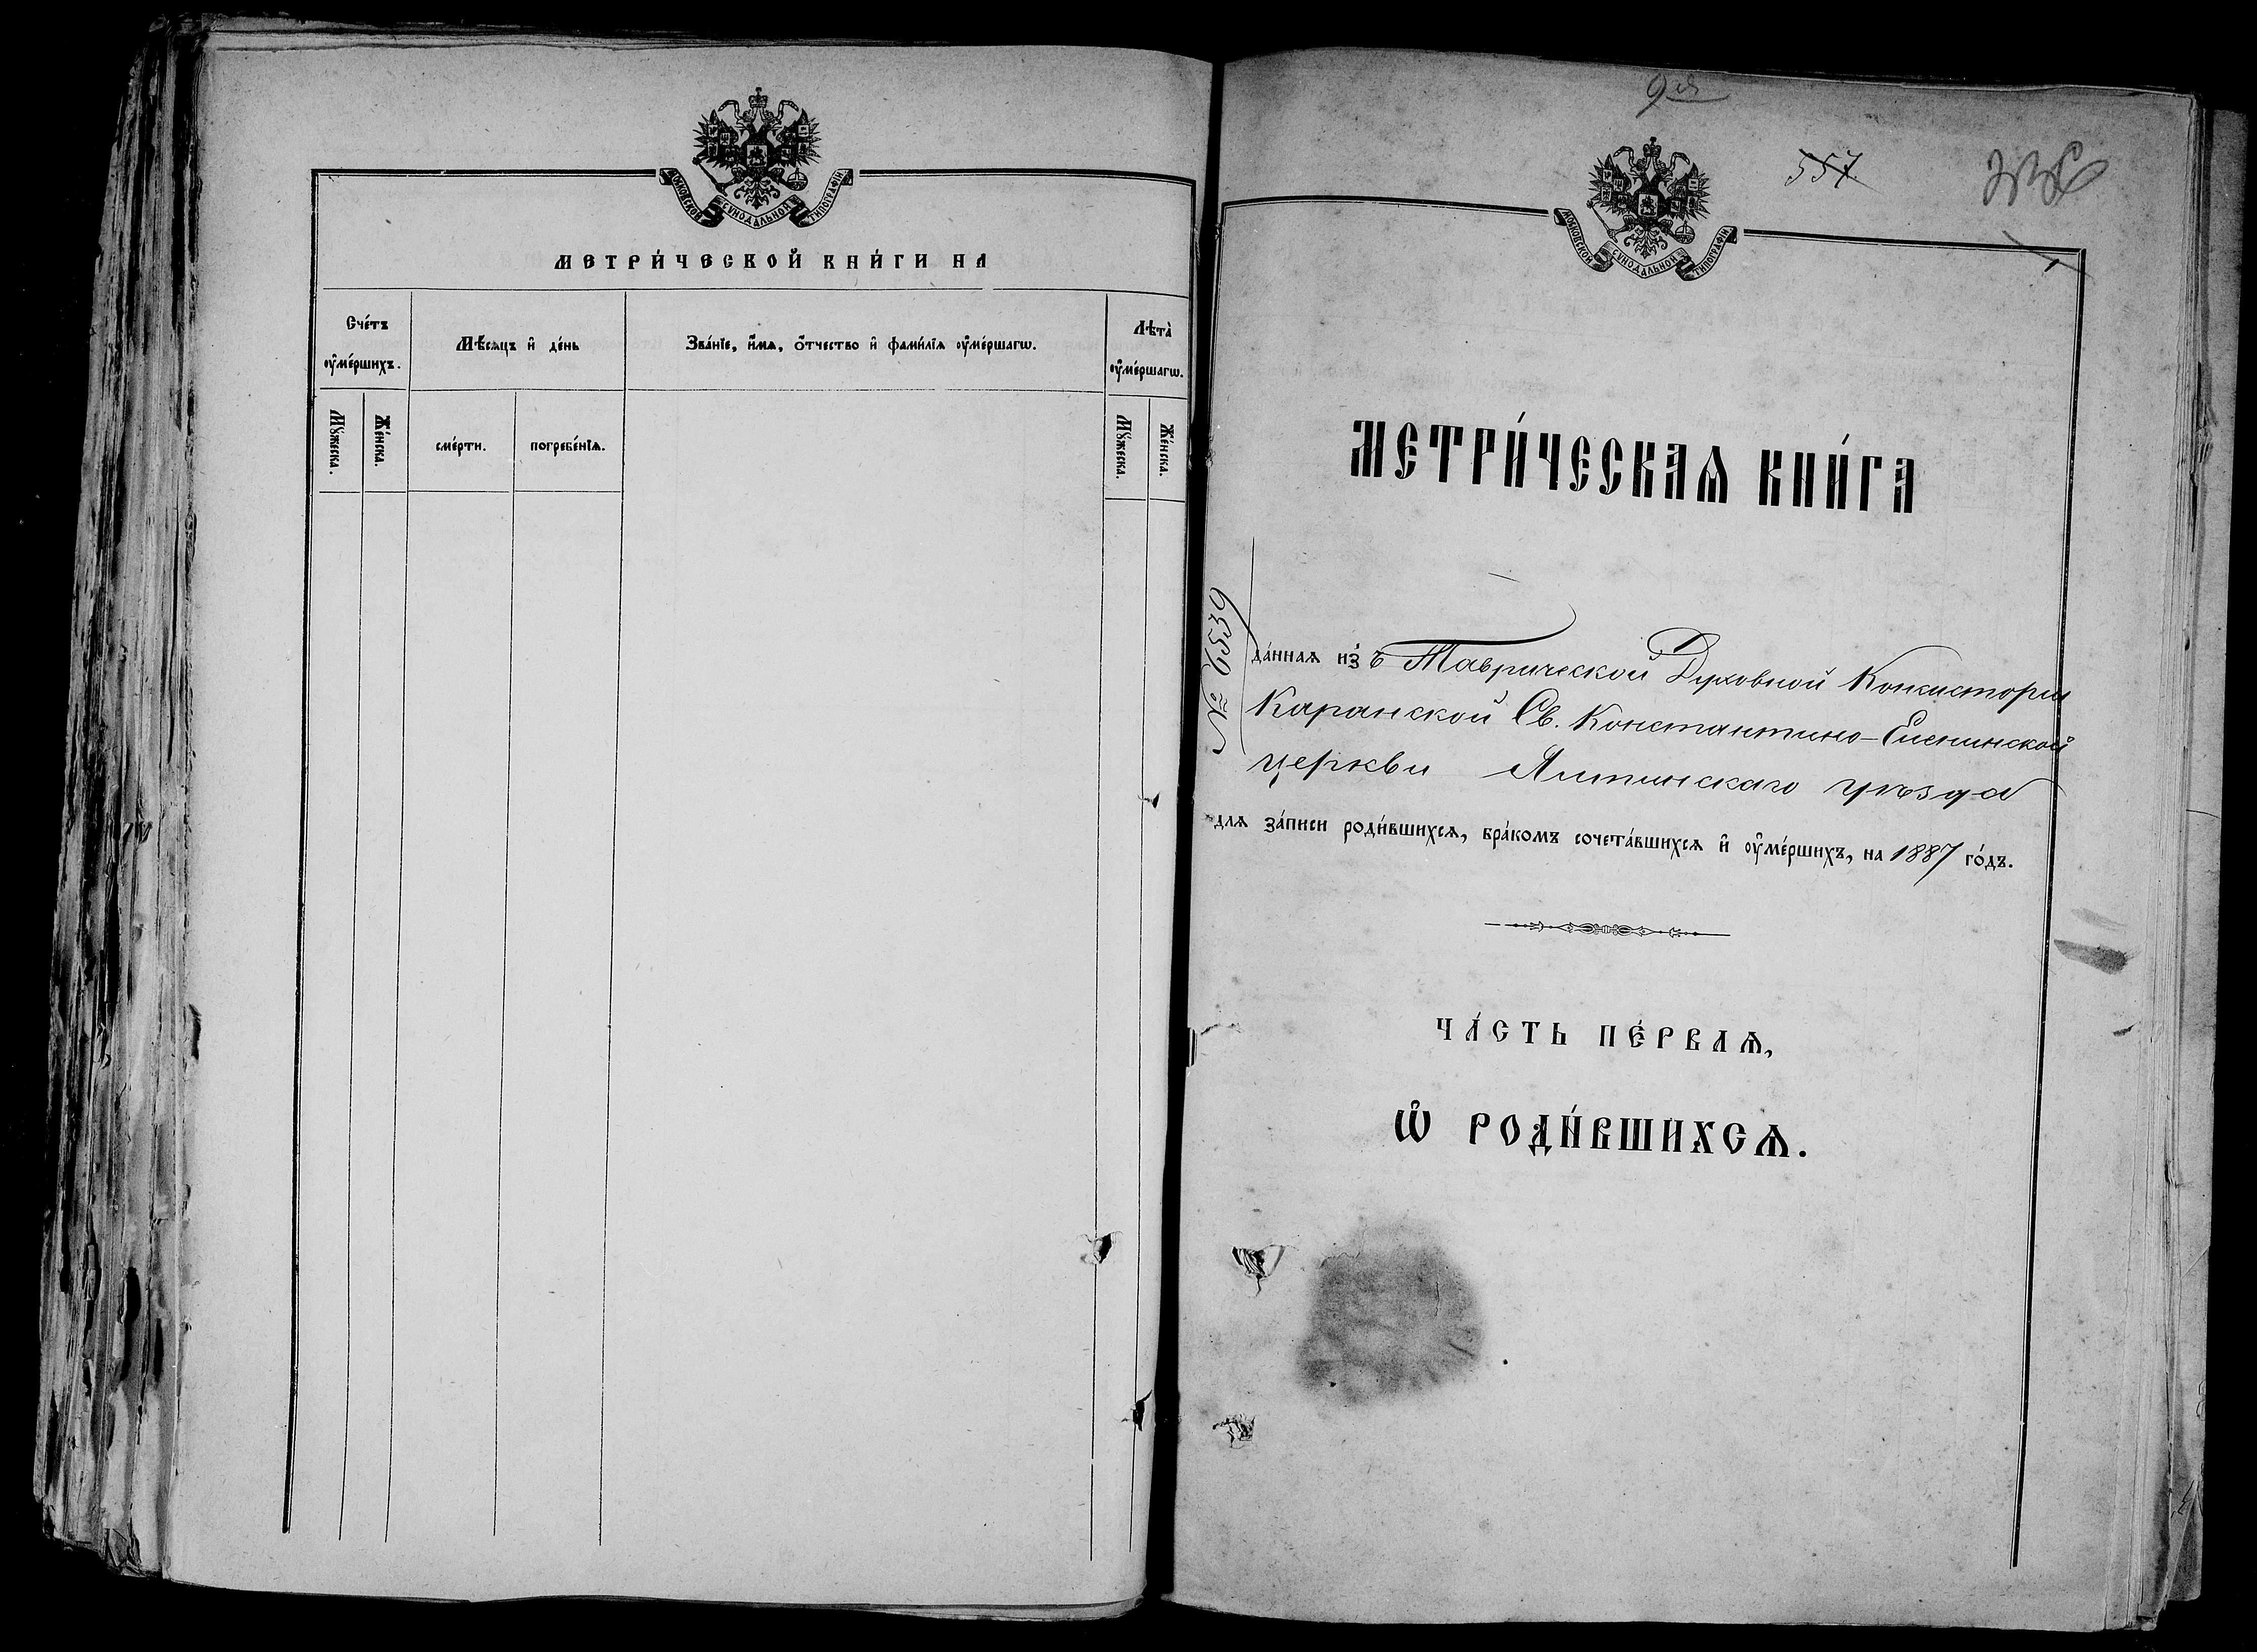 МОСКОВСКОЙ СѴНОДАЛЬНОЙ ТИПОГРАФІИ
МЕТРИ́ЧЕСКОЙ КНИ́ГИ НА
Сче́тъ ᲂу҆ме́ршихъ.
Мѣ́сѧцъ и҆ де́нь
Зва́нїе, и҆́мѧ, ѻ҆́тчество и҆ фами́лїѧ ᲂу҆ме́ршагѡ.
Лѣта̀ ᲂу҆ме́ршагѡ.
Мꙋ́жеска.
Же́нска.
сме́рти.
погребе́нїѧ.
Мꙋ́жеска.
Же́нска.
9ая
557
МОСКОВСКОЙ СѴНОДАЛЬНОЙ ТИПОГРАФІИ
МЕТРИ́ЧЕСКАѦ КНИ́ГА
№ 6539
да́ннаѧ и҆з̾ ъ Таврической Духовной Консисторіи
Каранской Св. Константино-Еленинской
церкви Ялтинскаго уѣзда
для за́писи роди́вшихсѧ, бра́комъ сочета́вшихсѧ и҆ ᲂу҆ме́ршихъ, на 1887 го́дъ.
ЧА́СТЬ ПЕ́РВАѦ,
Ѡ҆ РОДИ́ВШИХСѦ.